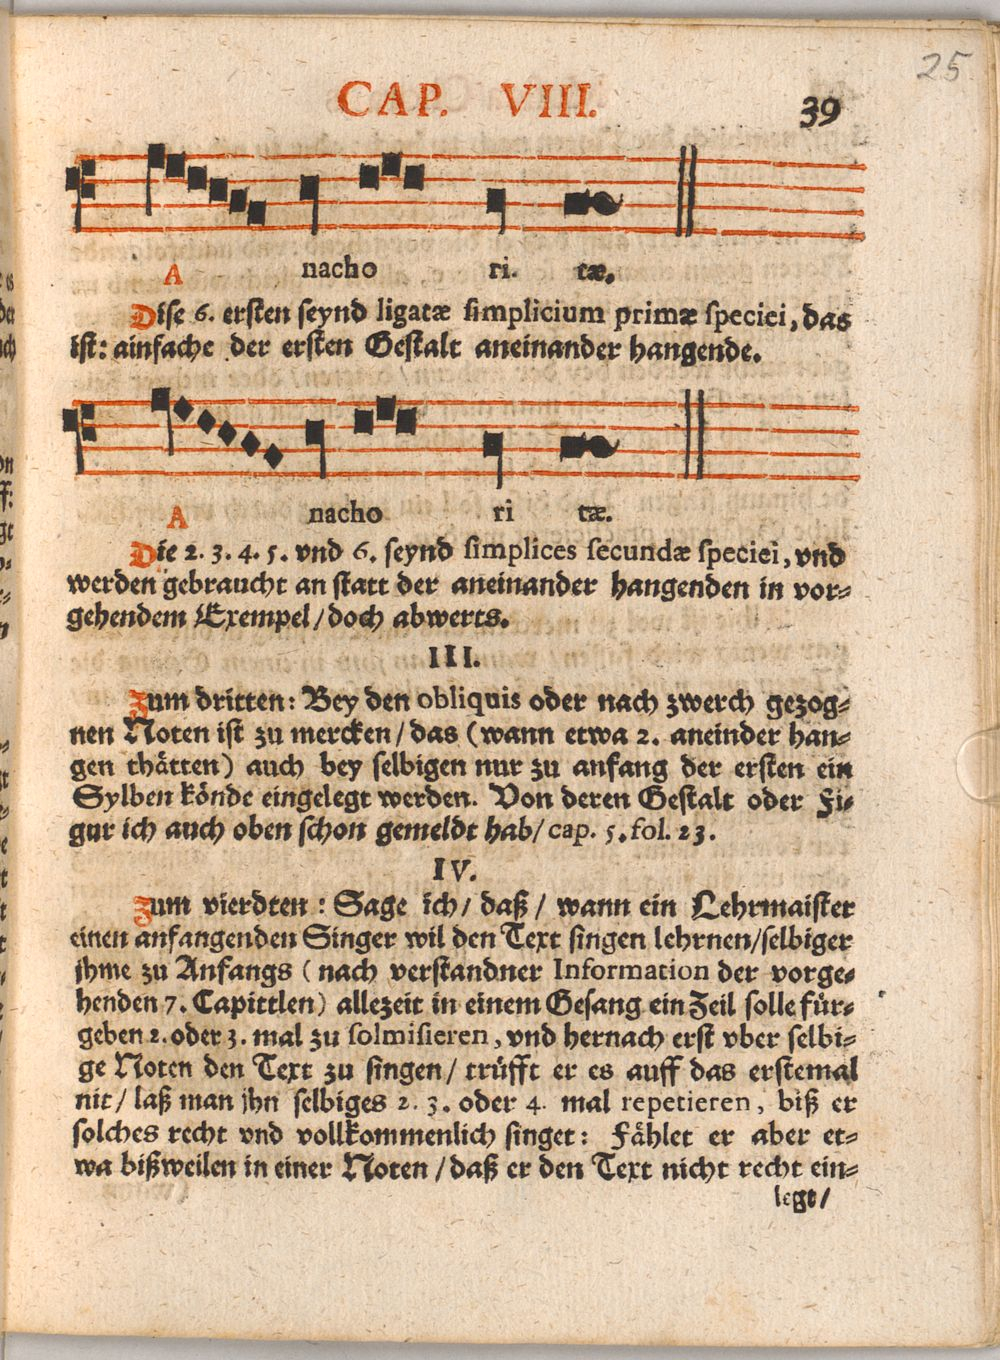 25
CAP. VIII. 39
A nacho ri. tæ.
Dise 6. ersten seynd ligatæ simplicium primæ speciei, das
ist: ainfache der ersten Gestalt aneinander hangende.
A nacho ri tæ.
Die 2. 3. 4. 5. vnd 6. seynd simplices secundæ speciei, vnd
werden gebraucht an statt der aneinander hangenden in vor-
gehendem Exempel / doch abwerts.
III.
Zum dritten: Bey den obliquis oder nach zwerch gezog-
nen Noten ist zu mercken / das (wann etwa 2. aneinder han-
gen thätten) auch bey selbigen nur zu anfang der ersten ein
Sylben könde eingelegt werden. Von deren Gestalt oder Fi-
gur ich auch oben schon gemeldt hab / cap. 5. fol. 23.
IV.
Zum vierdten: Sage ich / daß / wann ein Lehrmaister
einen anfangenden Singer wil den Text singen lehrnen / selbiger
jhme zu Anfangs (nach verstandner Information der vorge-
henden 7. Capittlen) allezeit in einem Gesang ein Zeil solle für-
geben 2. oder 3. mal zu solmisieren, vnd hernach erst vber selbi-
ge Noten den Text zu singen / trüfft er es auff das erstemal
nit / laß man jhn selbiges 2. 3. oder 4. mal repetieren, biß er
solches recht vnd vollkommenlich singet: Fählet er aber et-
wa bißweilen in einer Noten / daß er den Text nicht recht ein-
legt /